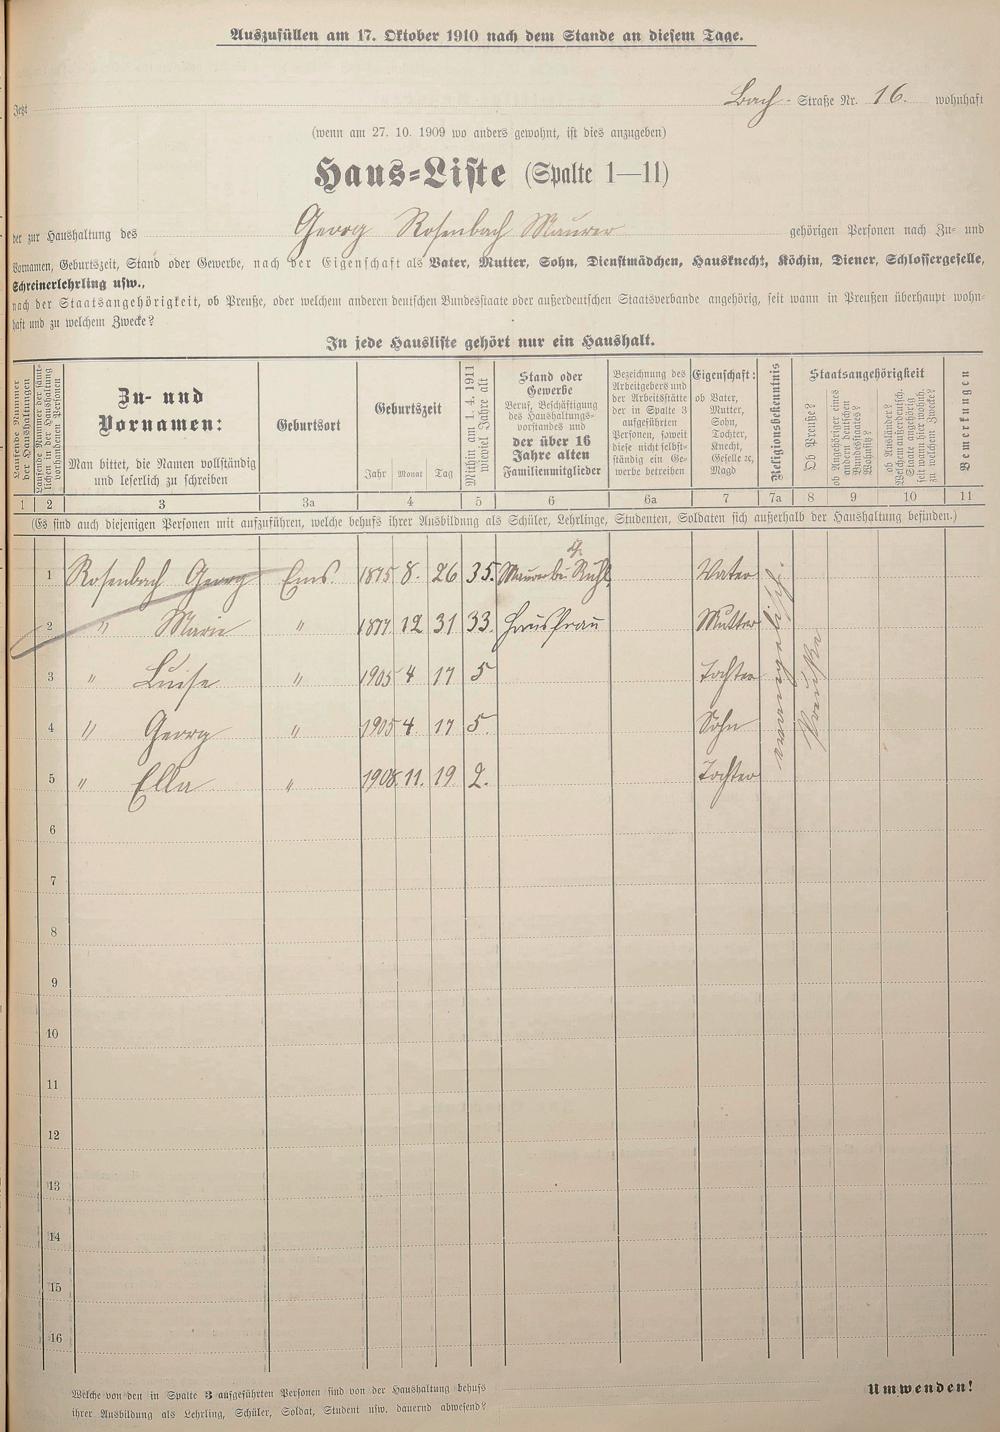 Auszufüllen am 17. Oktober 1910 nach dem Stande an diesem Tage.
Jetzt Bach- Straße Nr. 16. wohnhaft
(wenn am 27. 10. 1909 wo anders gewohnt, ist dies anzugeben)
Haus-Liste (Spalte 1—11)
der zur Haushaltung des Georg Rosenbach Maurer gehörigen Personen nach Zu- und
Vornamen, Geburtszeit, Stand oder Gewerbe, nach der Eigenschaft als Vater, Mutter, Sohn, Dienstmädchen, Hausknecht, Köchin, Diener, Schlossergeselle,
Schreinerlehrling usw.,
nach der Staatsangehörigkeit, ob Preuße, oder welchem anderen deutschen Bundesstaate oder außerdeutschen Staatsverbande angehörig, seit wann in Preußen überhaupt wohn-
haft und zu welchem Zwecke?
In jede Hausliste gehört nur ein Haushalt.
Laufende Nummer
der Haushaltungen
Laufende Nummer der sämt-
lichen in der Haushaltung
vorhandenen Personen
Zu- und
Vornamen:
Man bittet, die Namen vollständig
und leserlich zu schreiben
Geburtsort
Geburtszeit
Jahr Monat Tag
Mithin am 1. 4. 1911
wieviel Jahre alt
Stand oder
Gewerbe
Beruf, Beschäftigung
des Haushaltungs-
vorstandes und
der über 16
Jahre alten
Familienmitglieder
Bezeichnung des
Arbeitgebers und
der Arbeitsstätte
der in Spalte 3
aufgeführten
Personen, soweit
diese nicht selbst-
ständig ein Ge-
werbe betreiben
Eigenschaft:
ob Vater,
Mutter,
Sohn,
Tochter,
Knecht,
Geselle ec,
Magd
Religionsbekenntnis
Staatsangehörigkeit
Ob Preuße?
ob Angehöriger eines
andern deutschen
Bundesstaates?
Wohnsitz?
ob Ausländer?
Welchem außerdeutsch.
Staate angehörig
seit wann hier wohnh.
zu welchem Zwecke?
Bemerkungen
1 2 3 3a 4 5 6 6a 7 7a 8 9 10 11
(Es sind auch diejenigen Personen mit aufzuführen, welche behufs ihrer Ausbildung als Schüler, Lehrlinge, Studenten, Soldaten sich außerhalb der Haushaltung befinden.)
1 Rosenbach Georg Ems 1875 8. 26 35. Maurer bei Rühl Vater
2 " Marie " 1877 12 31 33. Hausfrau Mutter
3 " Luise " 1905 4 17 5 Tochter
4 " Georg " 1905 4 17 5. Sohn
5 " Ella " 1908. 11. 19 2. Tochter
evangelisch.
Preuße
6
7
8
9
10
11
12
13
14
15
16
Welche von den in Spalte 3 aufgeführten Personen sind von der Haushaltung behufs
ihrer Ausbildung als Lehrling, Schüler, Soldat, Student usw. dauernd abwesend?
Umwenden!